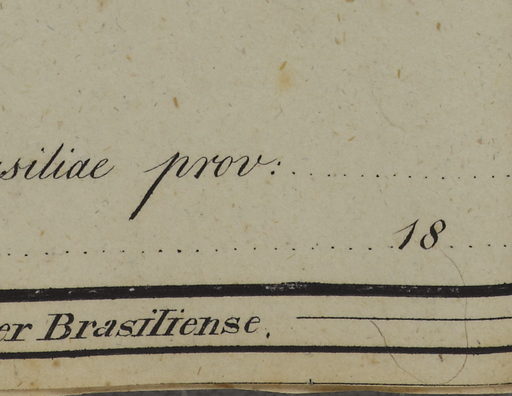 siliae prov:
18
er Brasiliense.